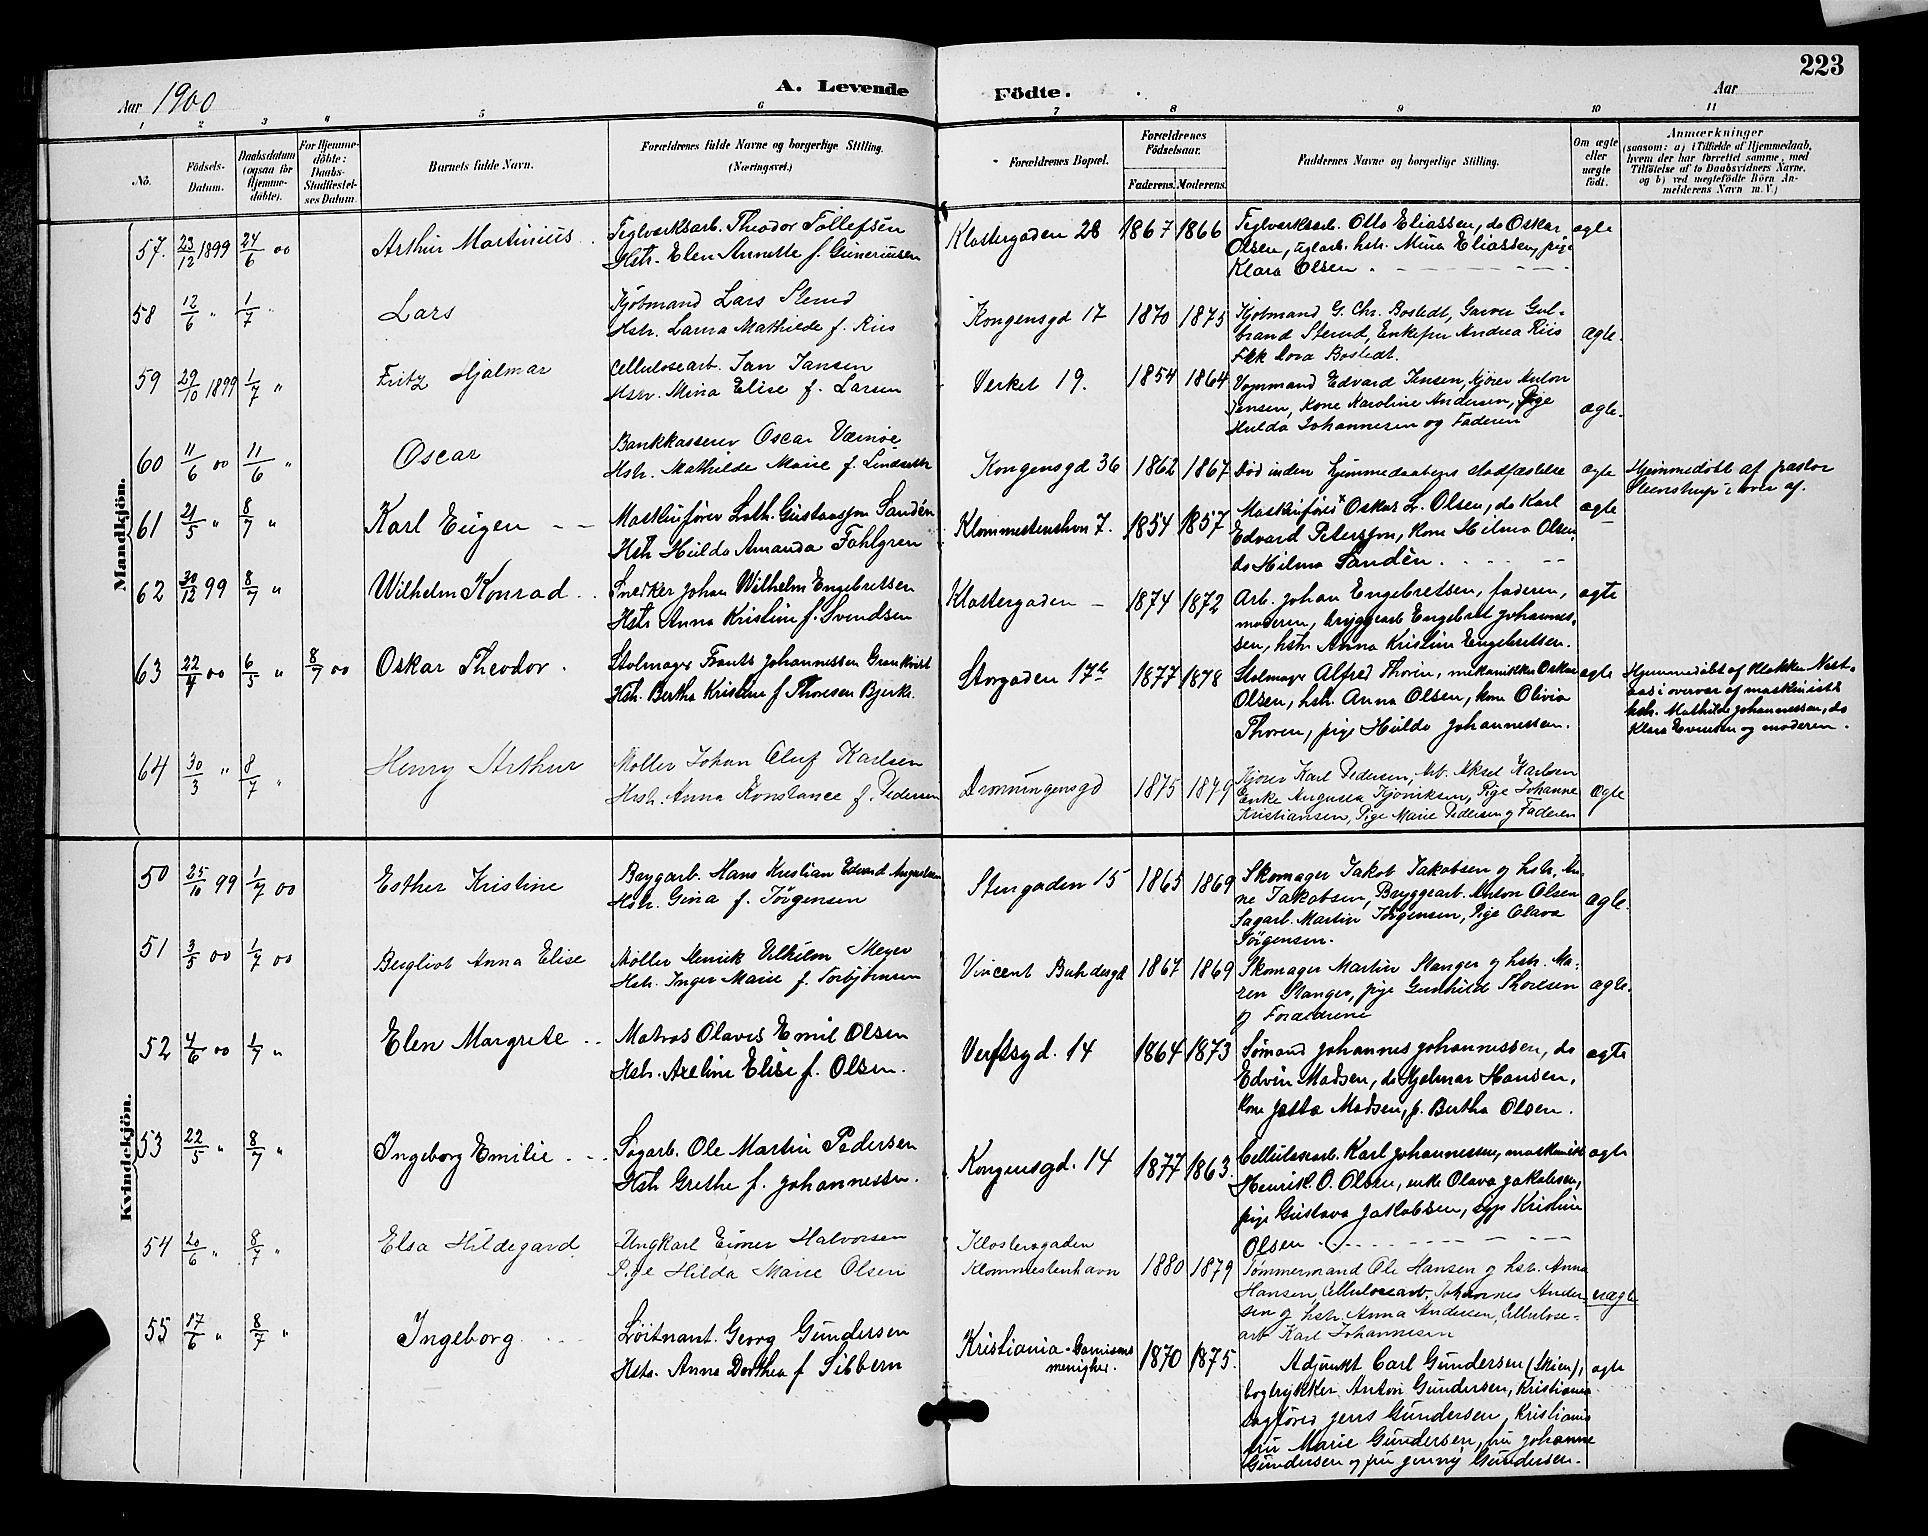 223
Aar 1900
A. Levende
Födte.
Aar
1 2 3 4 5 6 7 8 9 10 11
No.
Födsels-Datum.
Daabsdatum (ogsaa for Hjemme-döbte).
For Hjemme-döbte: Daabs-Stadfæstel-ses Datum.
Barnets fulde Navn.
Forældrenes fulde Navne og borgerlige Stilling. (Næringsvei.)
Forældrenes Bopæl.
Forældrenes Födselsaar.
Faderens. Moderens.
Faddernes Navne og borgerlige Stilling.
Om ægte eller uægte födt.
Anmærkninger
(saasom: a) i Tilfælde af Hjemmedaab, hvem der har forrettet samme, med Tilföielse af to Daabsvidners Navne, og b) ved uægtefödte Börn An-melderens Navn m. V.)
Mandkjön.
57. 23/12 1899 24/6 00 Arthur Martinius Teglverksarb. Theodor Tollefsen Klostergaden 28 1867 1866 Teglverksarb. Otto Eliassen, do Oskar ægte
Hstr. Elen Annette f. Guneriusen Olsen, teglarb. hstr. Mina Eliassen, pige
Klara Olsen
58 12/6 " 1/7 " Lars Kjøbmand Lars Sterud Kongensgd 17 1870 1875 Kjøbmand G. Chr. Bostedt, Garver Gul-
Hstr. Laura Mathilde f. Riis brand Sterud, Enkefru Andrea Riis ægte.
Frk Dora Bostedt.
59 29/10 1899 1/7 " Fritz Hjalmar Cellulosearb. Jan Jansen Verket 19. 1854 1864 Vognmand Edvard Jensen, Kjører Anton
Hstr. Mina Elise f. Larsen Jensen, Kone Karoline Andersen, Pige ægte.
Hulda Johannesen og Faderen
60 11/6 00 11/6 " Oscar Bankkasserer Oscar Værnøe
Hstr. Mathilde Marie f. Lindseth Kongensgd 36 1862 1867 Død inden hjemmedaabens stadfæstelse ægte Hjemmedøbt af pastor
Steenstrup i over af.
61 21/5 " 8/7 " Karl Eugen Maskinfører Loth. Gustavsson Sandén Klommestenshvn 7. 1854 1857 Maskinfører Oskar L. Olsen, do Karl ægte
Hstr Hulda Amanda Fahlgren Edvard Petersson, kone Hilma Olsen
do Hilma Sandén
62 30/12 99 8/7 " Wilhelm Konrad Snedker Johan Wilhelm Engebretsen Klostergaden 1874 1872 Arb. Johan Engebretsen, faderen, ægte
Hstr Anna Kristine f. Svendsen moderen, bryggearb Engebret Johannes-
sen, hstr Anna Kristine Engebretsen.
63 22/4 00 6/5 " 8/7 00 Oskar Theodor Stolmager Frants Johannessen Grankvist Storgaden 17b 1877 1878 Stolmager Alfred Thoren, mekanikker Oskar ægte Hjemmedøbt af klokker Nast-
Hstr. Bertha Kristine f Thoresen Bjerke. Olsen, hstr. Anna Olsen, kone Olivia aas i overvær af maskinists
Thoren, pige Hulda Johannessen. hstr. Mathilde Johannessen, do
Klara Evensen og moderen.
64 30/3 " 8/7 " Henry Arthur Møller Johan Oluf Karlsen Dronningensgd 1875 1879 Kjører Karl Pedersen, Arb. Aksel Karlsen
Hstr. Anna Konstance f. Pedersen Enke Augusta Kjøniksen, Pige Johanne ægte
Kristiansen, Pige Marie Pedersen og Faderen
Kvindekjön.
50 25/10 99 1/7 00 Esther Kristine Brygarb. Hans Kristian Edvard Augustsen Stengaden 15 1865 1869 Skomager Jakob Jakobsen og hstr. An-
Hstr. Gina f. Jørgensen ne Jakobsen, Bryggearb. Anton Olsen ægte.
Sagarb. Martin Jørgensen, Pige Olava
Jørgensen.
51 3/5 00 1/7 00 Bergliot Anna Elise Møller Henrik Vilhelm Meyer Vincent Buhdesgd 1867 1869 Skomager Martin Stanger og hstr. Ma-
Hstr. Inger Marie f. Torbjørnsen ren Stanger, pige Gunhild Thoresen ægte.
og Forældrene
52 4/6 00 1/7 " Elen Margrete Matros Olavis Emil Olsen Verftsgd. 14 1864 1873 Sømand Johannes Johannessen, do ægte
Hstr. Axeline Elise f. Olsen. Edvin Madsen, do Hjelmar Hansen,
kone Jatta Madsen, p. Bertha Olsen.
53 22/5 " 8/7 " Ingeborg Emilie Sagarb. Ole Martin Pedersen Kongensgd. 14 1877 1863. Cellulosearb. Karl Johannessen, maskinist ægte
Hstr Grethe f. Johannessen. Henrik. O. Olsen, enke Olava Jakobsen,
pige Gustava Jakobsen, syp Kristine
Olsen
54 20/6 " 8/7 " Elsa Hildegard Ungkarl Einer Halvorsen Klostergaden
Pige Hilda Marie Olsen Klommestenhavn 1880 1879 Tømmermand Ole Hansen og hstr. Anna
Hansen, Cellulosearb. Johannes Ander- uægte
sen og hstr. Anna Andersen, Cellulose-
arb Karl Johannesen
55 17/6 " 8/7 " Ingeborg Løitnant. Georg Gundersen Kristiania - Garnisons 1870 1875.
Hstr. Anna Dorthea f Sibbern menighed. Adjunkt Carl Gundersen (Skien), ægte
bogtrykker Anton Gundersen, Kristiania
sagfører Jens Gundersen, Kristiania
fru Marie Gundersen, fru Johanne
Gundersen og fru Jenny Gundersen.